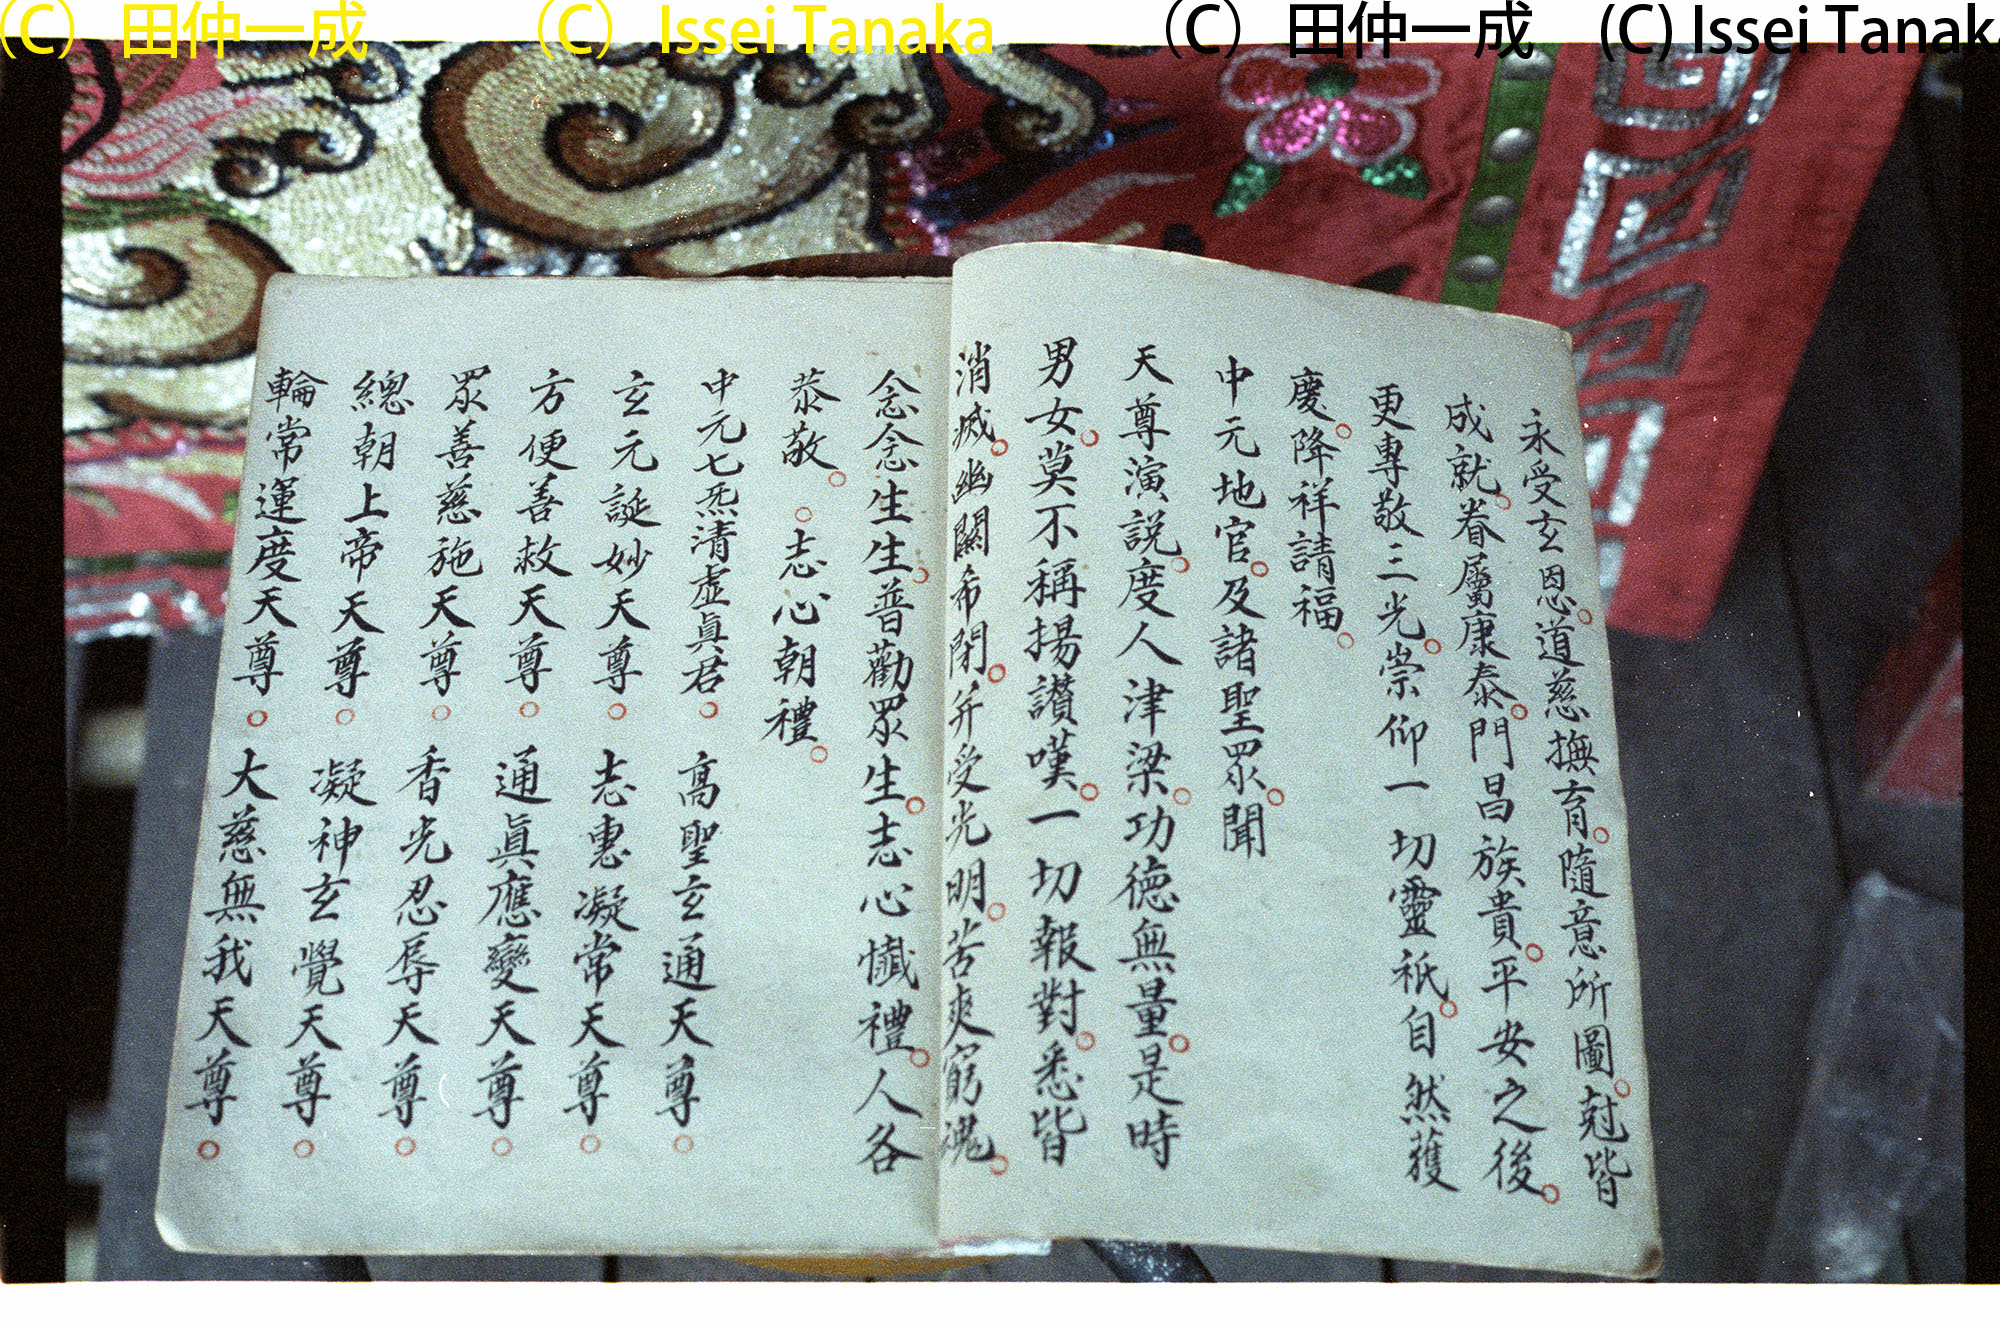 (C) 田仲一成 (C) Issei Tanaka (C) 田仲一成 (C) Issei Tanaka
永受玄恩。道慈撫育。隨意所圖。尅皆
成就。眷屬康泰。門昌族貴。平安之後。
更專敬三光。崇仰一切靈祇。自然獲
慶。降祥請福。
中元地官。及諸聖眾。聞
天尊演説。度人津梁。功德無量。是時
男女。莫不稱揚讃嘆。一切報對。悉皆
消滅。幽關希閉。并受光明。苦爽窮魂。
念念生生。普勸眾生。志心懺禮。人各
恭敬。○志心朝禮。
中元七炁清虛眞君○高聖玄通天尊○
玄元誕妙天尊○志惠凝常天尊○
方便善救天尊○通眞應變天尊○
眾善慈施天尊○香光忍辱天尊○
總朝上帝天尊○凝神玄覺天尊○
輪常運度天尊○大慈無我天尊○